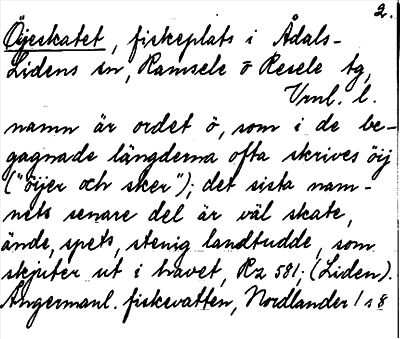 2.
Öijeskatet, fiskeplats i Ådals-
Lidens sn, Ramsele o Resele tg,
Vnl. l.
namn är ordet ö, som i de be-
gagnade längderna ofta skrives öij
("öijer och sker"); det sista nam-
nets senare del är väl skate,
ände, spets, stenig landtudde, som
skjuter ut i havet, Rz 581; (Liden).
Ångermanl. fiskevatten, Nordlander 1 s 8